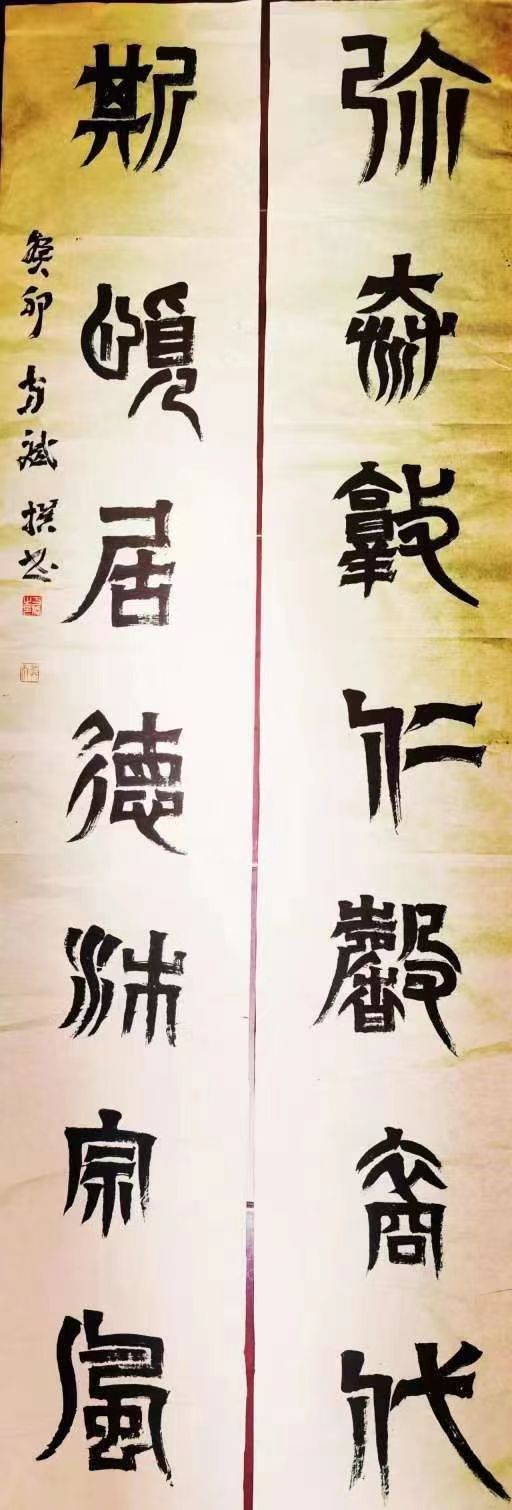 弥敦仁馨裔代
斯頌居德沐宗風
癸卯斌撰书